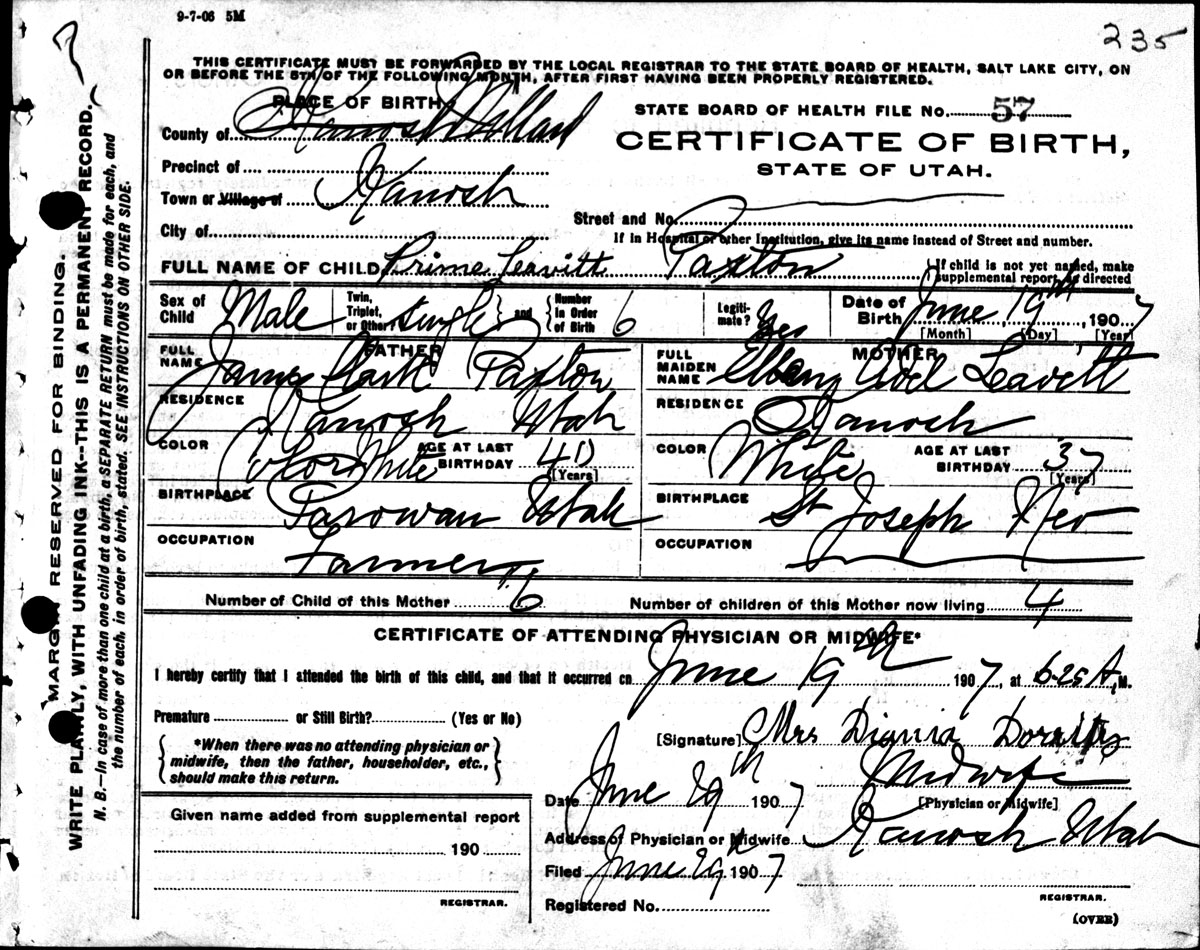 9-7-06 5M
235
THIS CERTIFICATE MUST BE FORWARDED BY THE LOCAL REGISTRAR TO THE STATE BOARD OF HEALTH, SALT LAKE CITY, ON
OR BEFORE THE 5TH OF THE FOLLOWING MONTH, AFTER FIRST HAVING BEEN PROPERLY REGISTERED.
PLACE OF BIRTH,
County of Kanosh Millard
Precinct of
Town or Village of Kanosh
City of
STATE BOARD OF HEALTH FILE No. 57
CERTIFICATE OF BIRTH,
STATE OF UTAH.
Street and No.
If in Hospital or other Institution, give its name instead of Street and number.
FULL NAME OF CHILD Prime Leavitt Paxton
If child is not yet named, make
supplemental report, as directed
Sex of Child Male
Twin, Triplet, or Other? single and Number in Order of Birth 6
Legitimate? Yes
Date of Birth June 19th, 1907
[Month] [Day] [Year]
FATHER
FULL NAME James Clark Paxton
RESIDENCE Kanosh Utah
COLOR Color White AGE AT LAST BIRTHDAY 40 [Years]
BIRTHPLACE Parowan Utah
OCCUPATION Farmer
MOTHER
FULL MAIDEN NAME Abel Leavitt
RESIDENCE Kanosh
COLOR White AGE AT LAST BIRTHDAY 37 [Years]
BIRTHPLACE St Joseph Nev
OCCUPATION
Number of Child of this Mother 6 Number of children of this Mother now living 4
CERTIFICATE OF ATTENDING PHYSICIAN OR MIDWIFE*
I hereby certify that I attended the birth of this child, and that it occurred on June 19th 1907, at 6-25 A, M.
Premature or Still Birth? (Yes or No)
*When there was no attending physician or
midwife, then the father, householder, etc.,
should make this return.
[Signature] Mrs
Midwife
[Physician or Midwife]
Date June 29th 1907
Address of Physician or Midwife Kanosh Utah
Filed June 29th 1907
Registered No.
REGISTRAR.
(OVER)
Given name added from supplemental report
190
REGISTRAR.
MARGIN RESERVED FOR BINDING.
WRITE PLAINLY, WITH UNFADING INK--THIS IS A PERMANENT RECORD.
N. B.—In case of more than one child at a birth, a SEPARATE RETURN must be made for each, and
the number of each, in order of birth, stated. SEE INSTRUCTIONS ON OTHER SIDE.